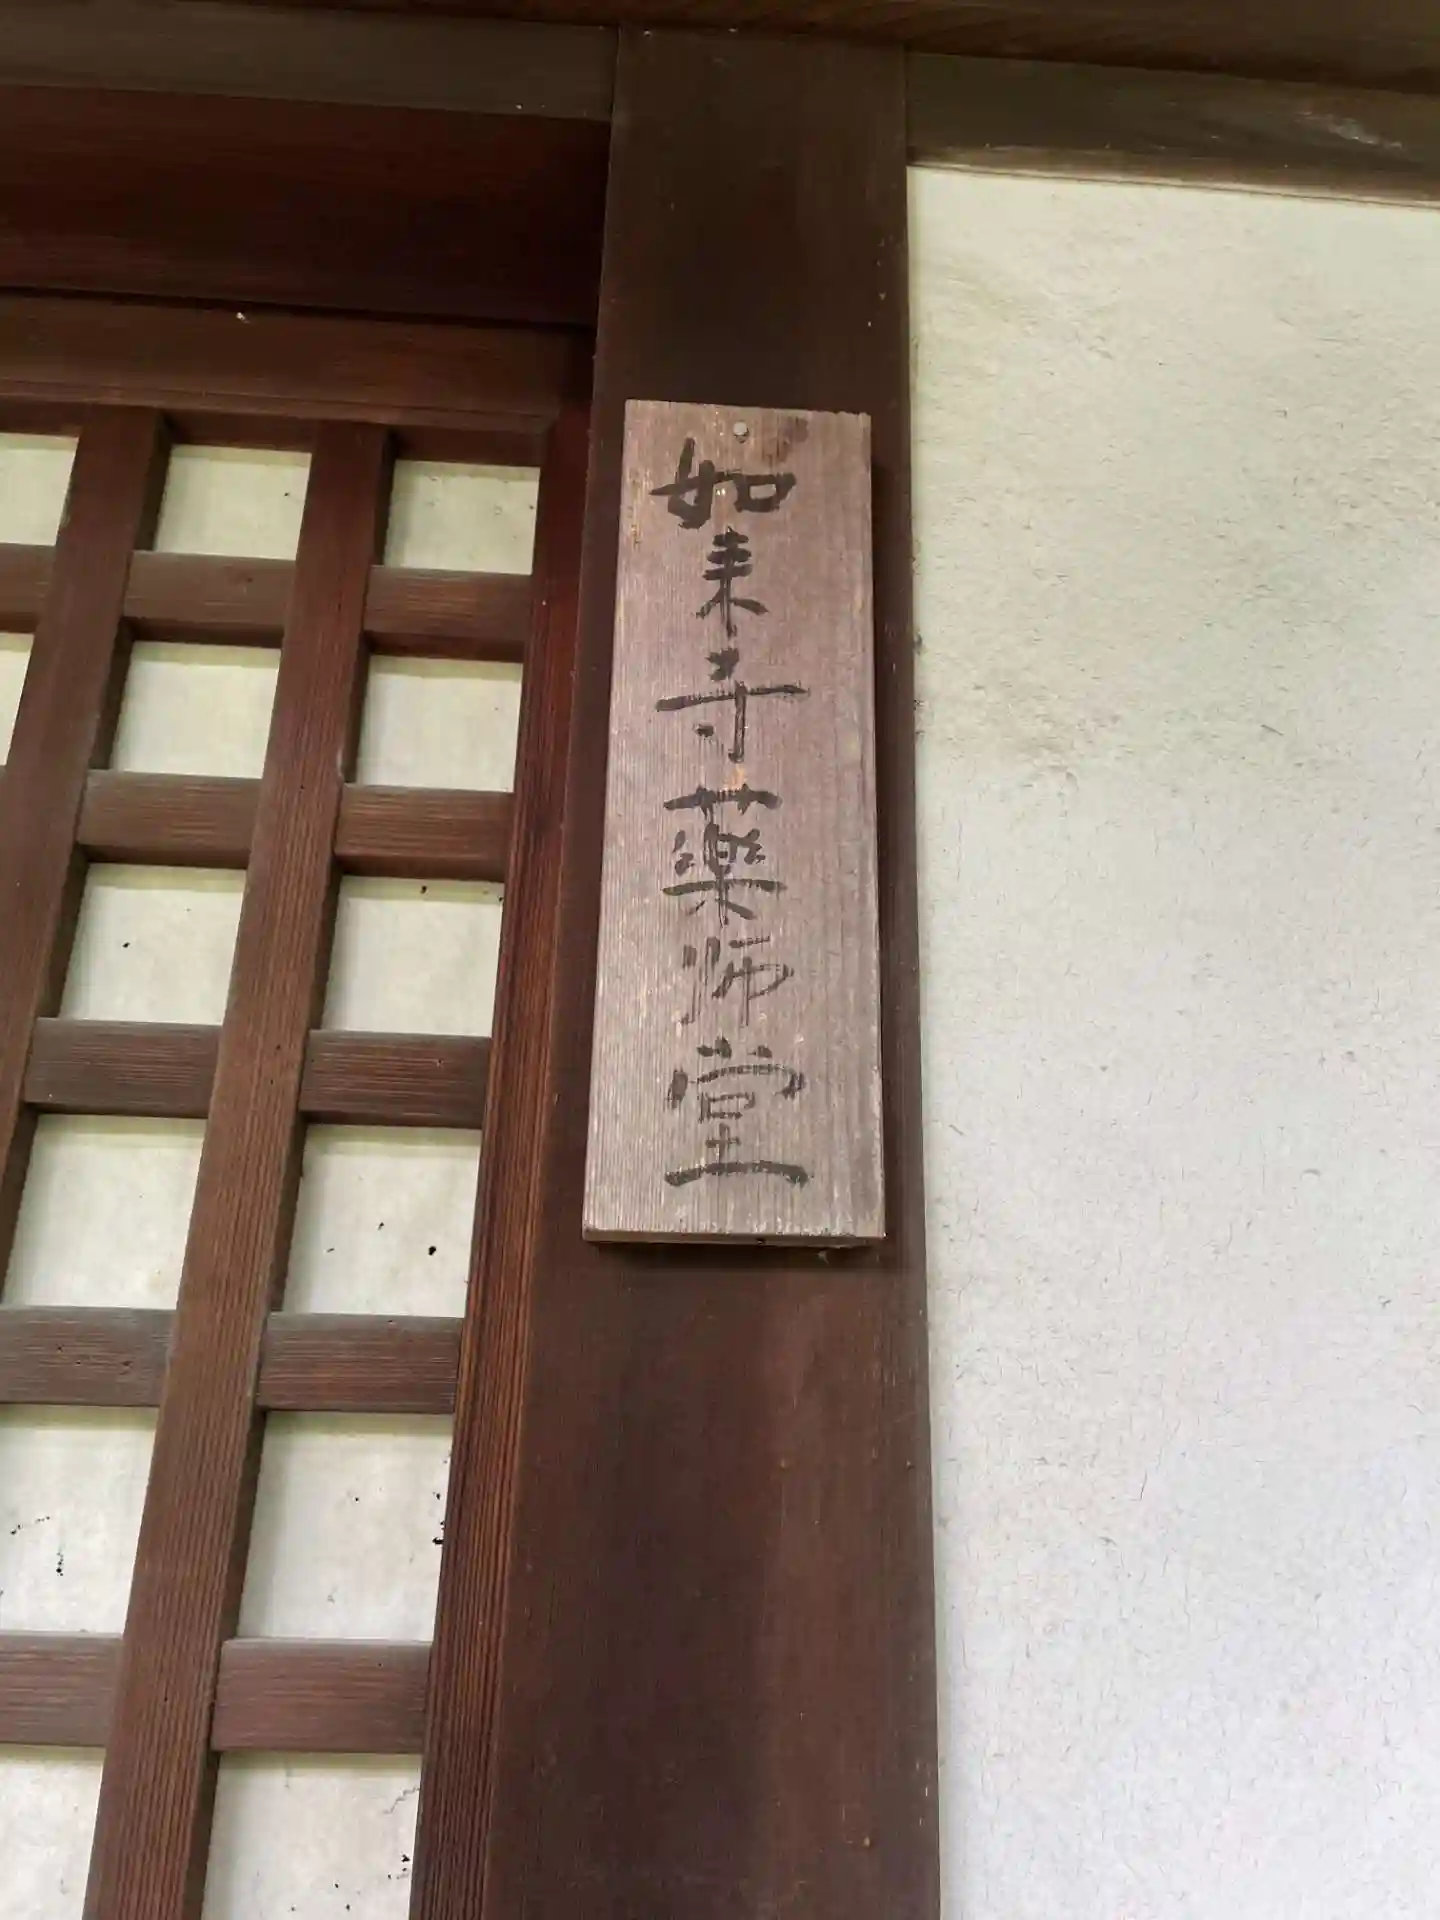 如来寺薬师堂